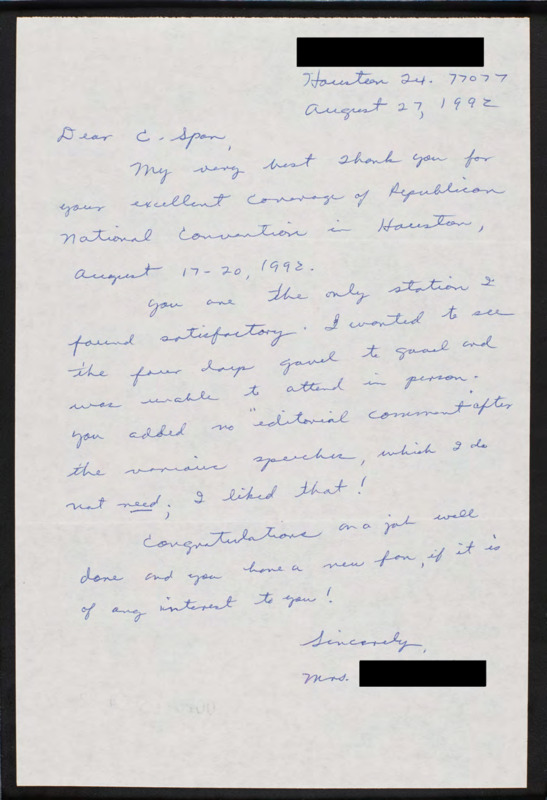 Houston Tx. 77077
August 27, 1992
Dear C-Span,
My very best thank you for
your excellent coverage of Republican
National Convention in Houston,
August 17-20, 1992.
You are the only station I
found satisfactory. I wanted to see
the four days gavel to gavel and
was unable to attend in person.
You added no "editorial comment" after
the various speeches, which I do
not need; I liked that!
Congratulations on a job well
done and you have a new fan, if it is
of any interest to you!
Sincerely,
Mrs.